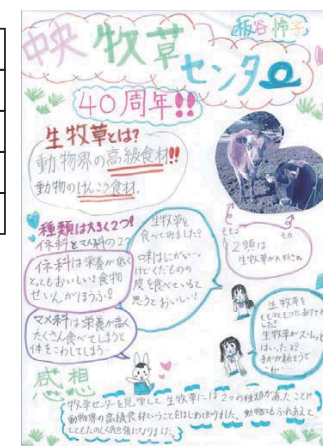 板谷怜子
中央牧草
センター
40周年!!
生牧草とは?
動物界の高級食材!!
動物のけんこう食材。
種類は大きく2つ!
イネ科とマメ科の2つ
イネ科は栄養が低く
とってもおいしい!食物
せんいがほうふ!
マメ科は栄養が高く
たくさん食べてしまうと
体をこわしてしまう…
生牧草を
食べてみました?
味はしにがい…
けどくだものの
皮を食べていると
思うとおいしい!
2頭は
生牧草が大好き
生牧草を
感想
牧草センターを見学して生牧草には2つの種類があったことや
動物界の高級食材ということをはじめて知りました。動物ともふれあえて
とてもたのしく勉強になりました。